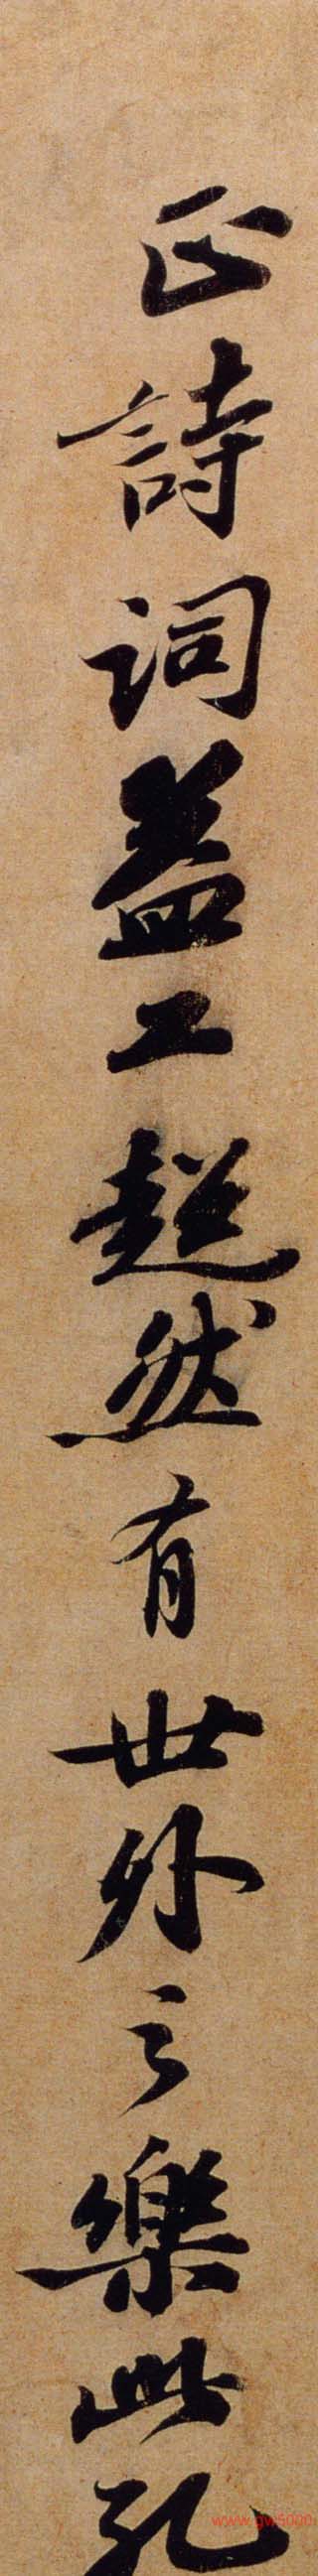 正詩詞益工超然有世外之樂此孔
www.gw5000